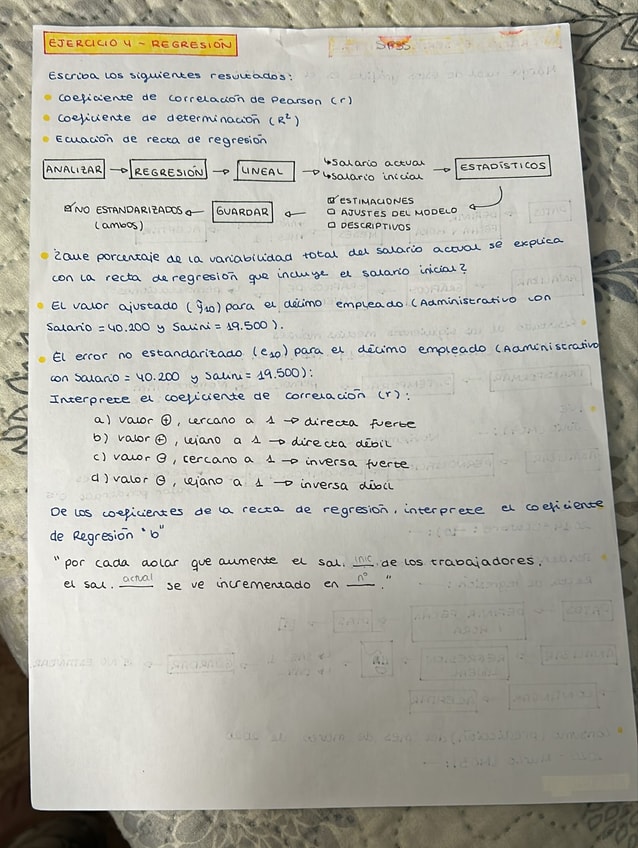 EJERCICIO 4 - REGRESIÓN
SPSS
Escriba los siguientes resultados:
• Coeficiente de correlación de Pearson (r)
• Coeficiente de determinación (R²)
• Ecuación de recta de regresión
ANALIZAR → REGRESIÓN → LINEAL → ↳ Salario actual ↳ Salario inicial → ESTADÍSTICOS
☑ NO ESTANDARIZADOS (ambos) ← GUARDAR ← ☑ ESTIMACIONES
☐ AJUSTES DEL MODELO
☐ DESCRIPTIVOS
• ¿Que porcentaje de la variabilidad total del salario actual se explica
con la recta de regresión que incluye el salario inicial?
• El valor ajustado (ŷ10) para el décimo empleado (Administrativo con
Salario = 40.200 y Salini = 19.500).
• El error no estandarizado (e10) para el décimo empleado (Administrativo
con Salario = 40.200 y Salini = 19.500):
Interprete el coeficiente de correlación (r):
a) valor ⊕, cercano a 1 → directa fuerte
b) valor ⊕, lejano a 1 → directa débil
c) valor ⊖, cercano a 1 → inversa fuerte
d) valor ⊖, lejano a 1 → inversa débil
De los coeficientes de la recta de regresión, interprete el coeficiente
de Regresión "b"
"por cada dolar que aumente el sal. inic. de los trabajadores,
el sal. actual se ve incrementado en nº."